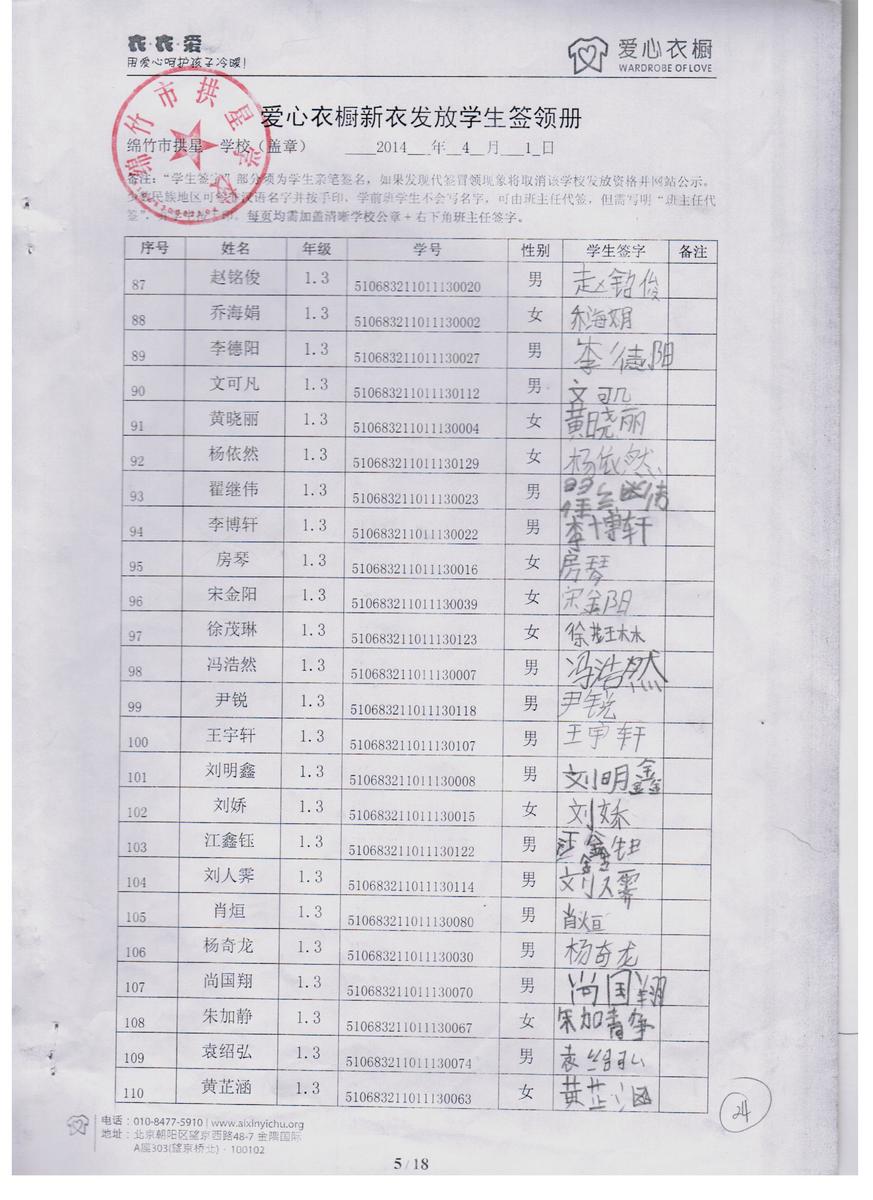 衣·衣·爱
用爱心呵护孩子冷暖！
爱心衣橱
WARDROBE OF LOVE
绵竹市拱星学校
爱心衣橱新衣发放学生签领册
绵竹市拱星 学校（盖章） 2014 年 4 月 1 日
备注：“学生签字”部分须为学生亲笔签名，如果发现代签冒领现象将取消该学校发放资格并网站公示。
少数民族地区可签非汉语名字并按手印，学前班学生不会写名字，可由班主任代签，但需写明“班主任代
每页均需加盖清晰学校公章+右下角班主任签字。
序号 姓名 年级 学号 性别 学生签字 备注
87 赵铭俊 1.3 510683211011130020 男 赵铭俊
88 乔海娟 1.3 510683211011130002 女 乔海娟
89 李德阳 1.3 510683211011130027 男 李德阳
90 文可凡 1.3 510683211011130112 男 文可凡
91 黄晓丽 1.3 510683211011130004 女 黄晓丽
92 杨依然 1.3 510683211011130129 女 杨依然
93 翟继伟 1.3 510683211011130023 男 翟继伟
94 李博轩 1.3 510683211011130022 男 李博轩
95 房琴 1.3 510683211011130016 女 房琴
96 宋金阳 1.3 510683211011130039 女 宋金阳
97 徐茂琳 1.3 510683211011130123 女 徐茂琳
98 冯浩然 1.3 510683211011130007 男 冯浩然
99 尹锐 1.3 510683211011130118 男 尹锐
100 王宇轩 1.3 510683211011130107 男 王宇轩
101 刘明鑫 1.3 510683211011130008 男 刘明鑫
102 刘娇 1.3 510683211011130015 女 刘娇
103 江鑫钰 1.3 510683211011130122 男 江鑫钰
104 刘人霁 1.3 510683211011130114 男 刘人霁
105 肖烜 1.3 510683211011130080 男 肖烜
106 杨奇龙 1.3 510683211011130030 男 杨奇龙
107 尚国翔 1.3 510683211011130070 男 尚国翔
108 朱加静 1.3 510683211011130067 女 朱加静
109 袁绍弘 1.3 510683211011130074 男 袁绍弘
110 黄芷涵 1.3 510683211011130063 女 黄芷涵
24
电话：010-8477-5910 | www.aixinyichu.org
地址：北京朝阳区望京西路48-7 金隅国际
A座303(望京桥北)·100102
5/18